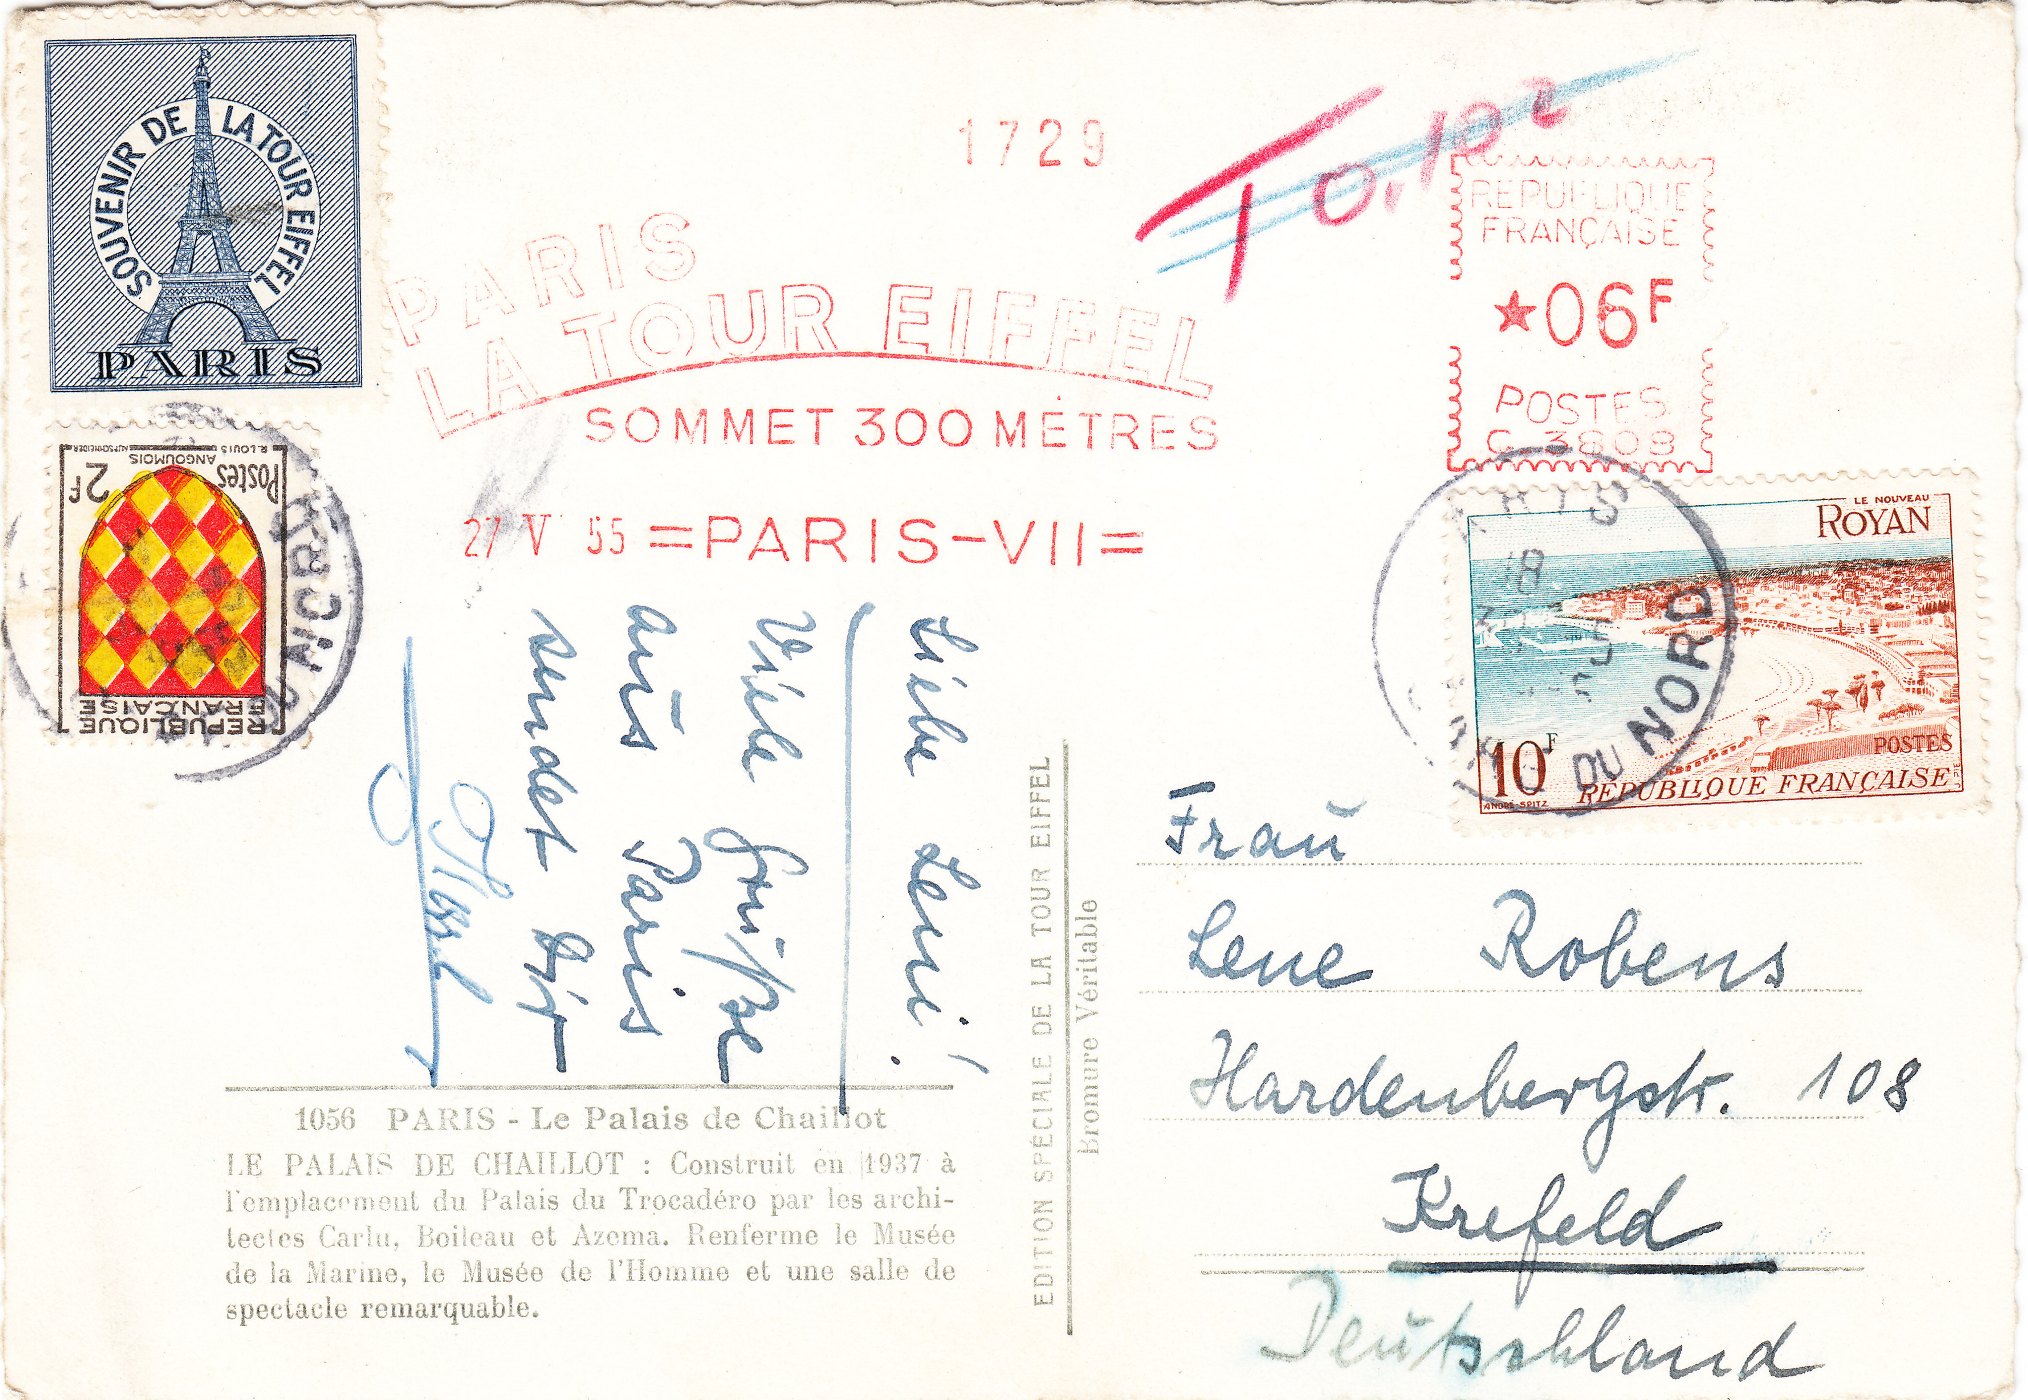 SOUVENIR DE LA TOUR EIFFEL
PARIS
1729
T 0,10
PARIS
LA TOUR EIFFEL
SOMMET 300 MÈTRES
27 V 55 =PARIS-VII=
REPUBLIQUE
FRANÇAISE
★06F
POSTES
C. 3808
Postes 2F
ANGOUMOIS
R. LOUIS AUFSCHNEIDER
REPUBLIQUE
FRANÇAISE
LE NOUVEAU
ROYAN
10F
POSTES
REPUBLIQUE FRANÇAISE
ANDRÉ SPITZ
PARIS
18
DU NORD
Liebe Leni!
Viele Grüße
aus Paris
sendet Dir
EDITION SPÉCIALE DE LA TOUR EIFFEL
Bromure Véritable
Frau
Lene Robens
Hardenbergstr. 108
Krefeld
Deutschland
1056 PARIS - Le Palais de Chaillot
LE PALAIS DE CHAILLOT : Construit en 1937 à
l'emplacement du Palais du Trocadéro par les archi-
tectes Carlu, Boileau et Azema. Renferme le Musée
de la Marine, le Musée de l'Homme et une salle de
spectacle remarquable.